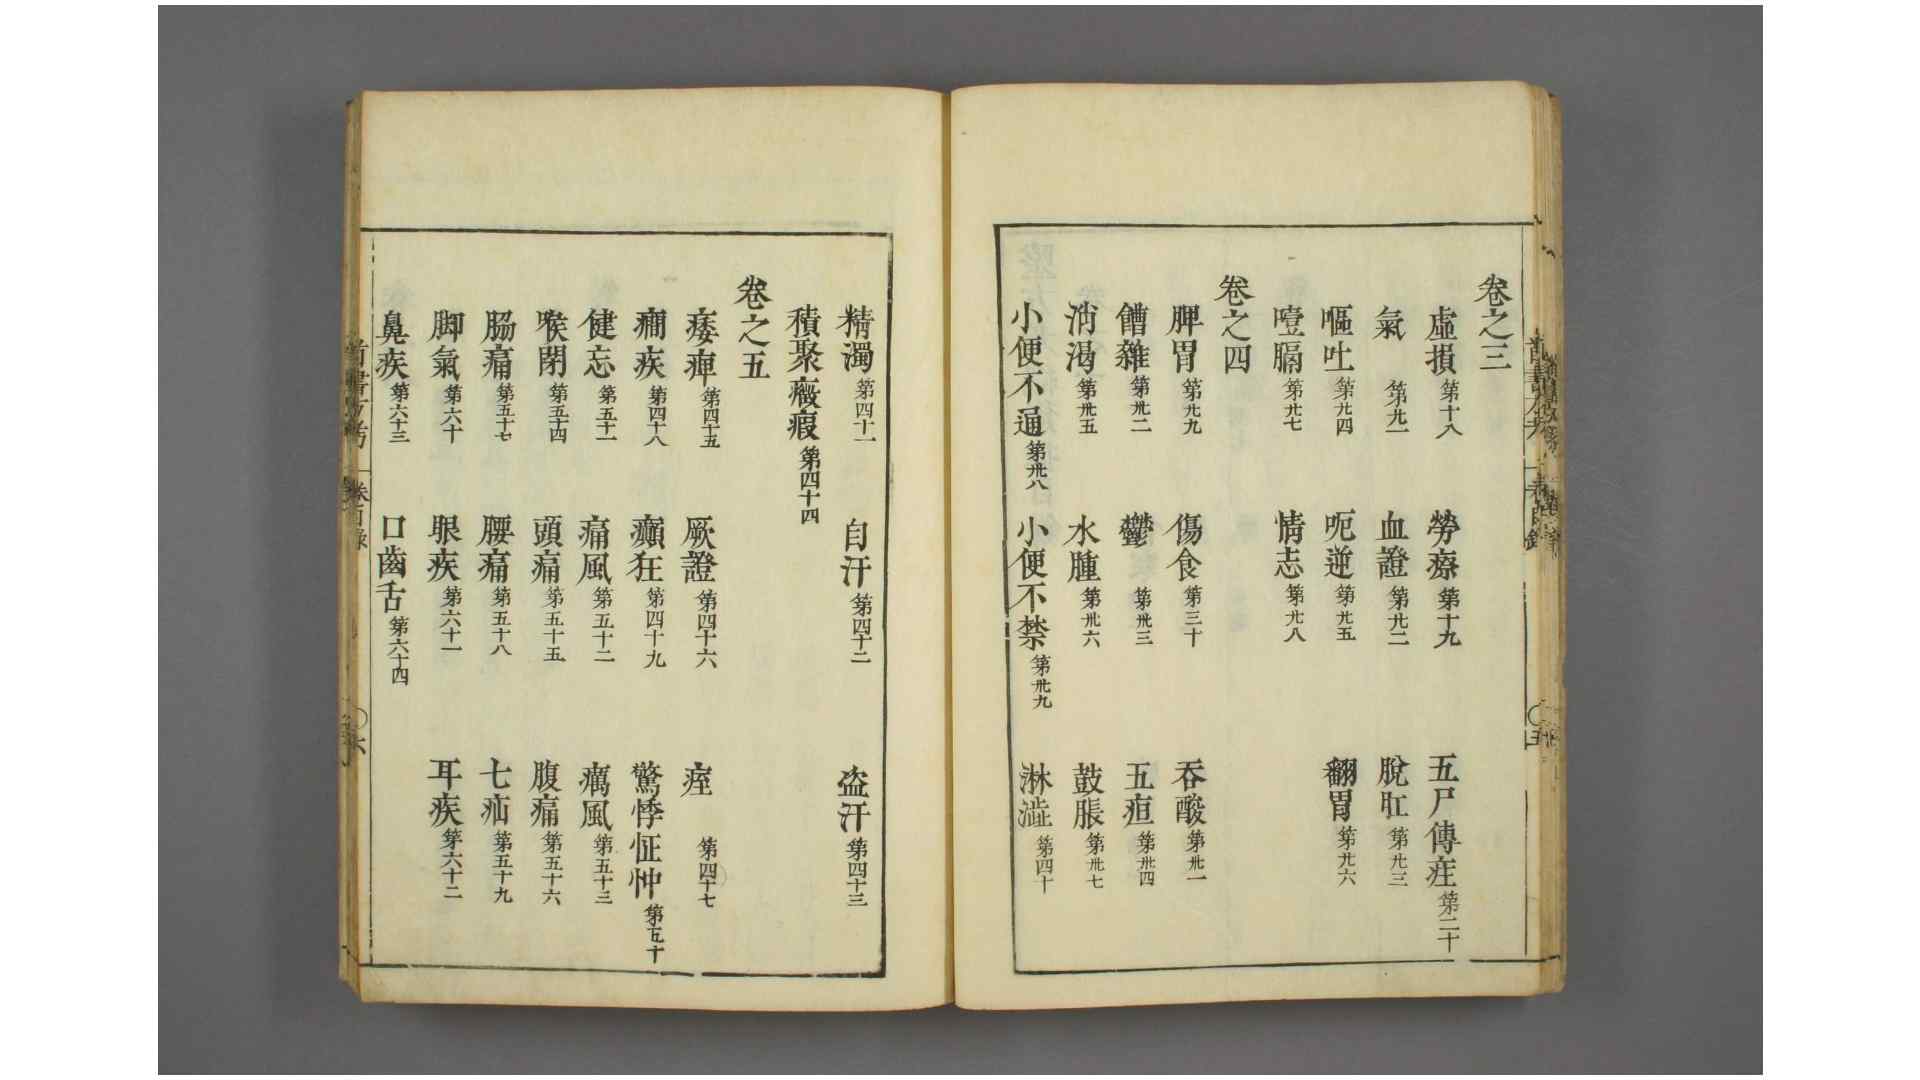 卷之三
虛損第十八 勞瘵第十九 五尸傳疰第二十
氣第廿一 血證第廿二 脫肛第廿三
嘔吐第廿四 呃逆第廿五 翻胃第廿六
噎膈第廿七 情志第廿八
卷之四
脾胃第廿九 傷食第三十 吞酸第卅一
饡雜第卅二 鬱第卅三 五疸第卅四
消渴第卅五 水腫第卅六 鼓脹第卅七
小便不通第卅八 小便不禁第卅九 淋澁第四十
精濁第四十一 自汗第四十二 盗汗第四十三
積聚癥瘕第四十四
卷之五
痿痺第四十五 厥證第四十六 痓第四十七
癇疾第四十八 癲狂第四十九 驚悸怔忡第五十
健忘第五十一 痛風第五十二 癘風第五十三
喉閉第五十四 頭痛第五十五 腹痛第五十六
肠痛第五十七 腰痛第五十八 七疝第五十九
脚氣第六十 眼疾第六十一 耳疾第六十二
鼻疾第六十三 口齒舌第六十四